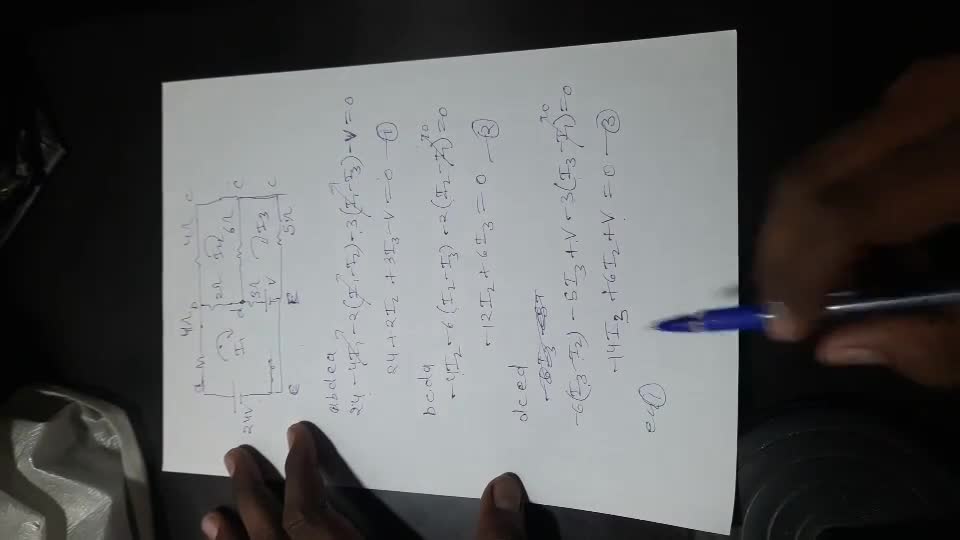 a 4Ω b 4Ω c
2Ω I₂ 6Ω c
24V I₁ d 3Ω I₃ c
V 5Ω
e E
abdea
24 - 4I₁ - 2(I₁-I₂) - 3(I₁-I₃) - V = 0
24 + 2I₂ + 3I₃ - V = 0 - ①
bcdb
-4I₂ - 6(I₂-I₃) - 2(I₂-I₁) = 0
-12I₂ + 6I₃ = 0 - ②
dced
-6(I₃-I₂) - 5I₃ + V - 3(I₃-I₁) = 0
-14I₃ + 6I₂ + V = 0 - ③
eq ①